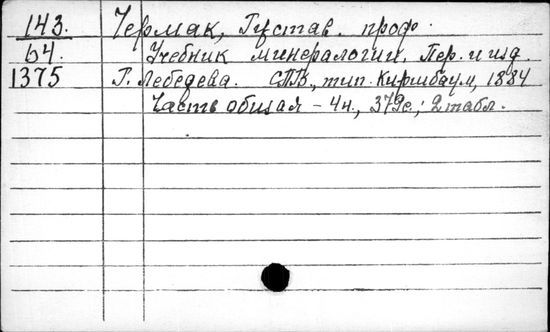 143. Чермак, Густав. проф.
64. Учебник минералогии. Пер. и изд.
1375 Г. Лебедева. СПБ., тип. Киршбаум, 1884
Часть общая – 4н., 379с.; 2 табл.